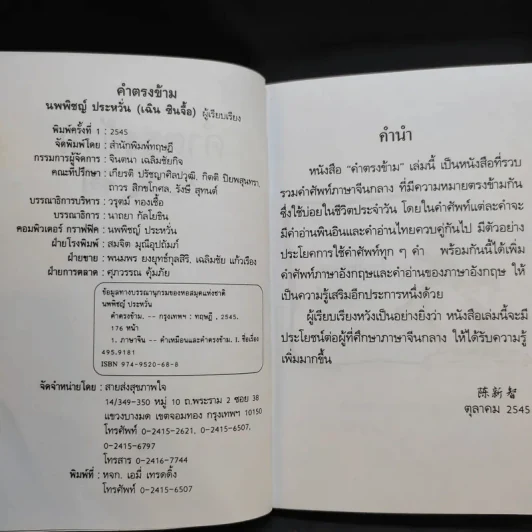 คำตรงข้าม
นพพิชญ์ ประหวั่น (เฉิน ซินจื้อ) ผู้เรียบเรียง
พิมพ์ครั้งที่ 1 : 2545
จัดพิมพ์โดย : สำนักพิมพ์ทฤษฎี
กรรมการผู้จัดการ : จินตนา เฉลิมชัยกิจ
คณะที่ปรึกษา : เกียรติ ปรัชญาศิลปวุฒิ, กิตติ ปิยพสุนทรา,
ถาวร สิกขโกศล, รังษี สุทนต์
บรรณาธิการบริหาร : วรุตม์ ทองเชื้อ
บรรณาธิการ : นาถยา กัลโยธิน
คอมพิวเตอร์ กราฟฟิค : นพพิชญ์ ประหวั่น
ฝ่ายโรงพิมพ์ : สมจิต มุณีอุปถัมภ์
ฝ่ายขาย : พนมพร ยงยุทธ์กุลสิริ, เฉลิมชัย แก้วเรือง
ฝ่ายการตลาด : ศุภวรรณ คุ้มภัย
ข้อมูลทางบรรณานุกรมของหอสมุดแห่งชาติ
นพพิชญ์ ประหวั่น
คำตรงข้าม. -- กรุงเทพฯ : ทฤษฎี, 2545.
176 หน้า
1. ภาษาจีน -- คำเหมือนและคำตรงข้าม. I. ชื่อเรื่อง
495.9181
ISBN 974-9520-68-8
จัดจำหน่ายโดย : สายส่งสุขภาพใจ
14/349-350 หมู่ 10 ถ.พระราม 2 ซอย 38
แขวงบางมด เขตจอมทอง กรุงเทพฯ 10150
โทรศัพท์ 0-2415-2621, 0-2415-6507,
0-2415-6797
โทรสาร 0-2416-7744
พิมพ์ที่ : หจก. เอมี่ เทรดดิ้ง
โทรศัพท์ 0-2415-6507
คำนำ
หนังสือ "คำตรงข้าม" เล่มนี้ เป็นหนังสือที่รวบ
รวมคำศัพท์ภาษาจีนกลาง ที่มีความหมายตรงข้ามกัน
ซึ่งใช้บ่อยในชีวิตประจำวัน โดยในคำศัพท์แต่ละคำจะ
มีคำอ่านพินอินและคำอ่านไทยควบคู่กันไป มีตัวอย่าง
ประโยคการใช้คำศัพท์ทุก ๆ คำ พร้อมกันนี้ได้เพิ่ม
คำศัพท์ภาษาอังกฤษและคำอ่านของภาษาอังกฤษ ให้
เป็นความรู้เสริมอีกประการหนึ่งด้วย
ผู้เรียบเรียงหวังเป็นอย่างยิ่งว่า หนังสือเล่มนี้จะมี
ประโยชน์ต่อผู้ที่ศึกษาภาษาจีนกลาง ให้ได้รับความรู้
เพิ่มมากขึ้น
陈新智
ตุลาคม 2545